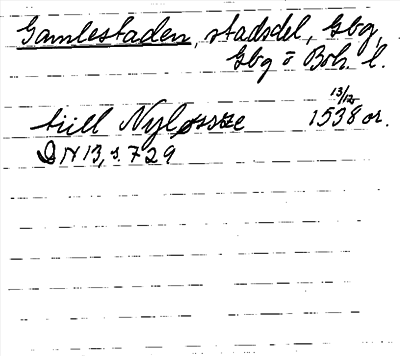 Gamlestaden, stadsdel, Gbg,
Gbg o Boh. l.
tiill Nyløssze 13/12 1538 or.
DN 13, s. 729